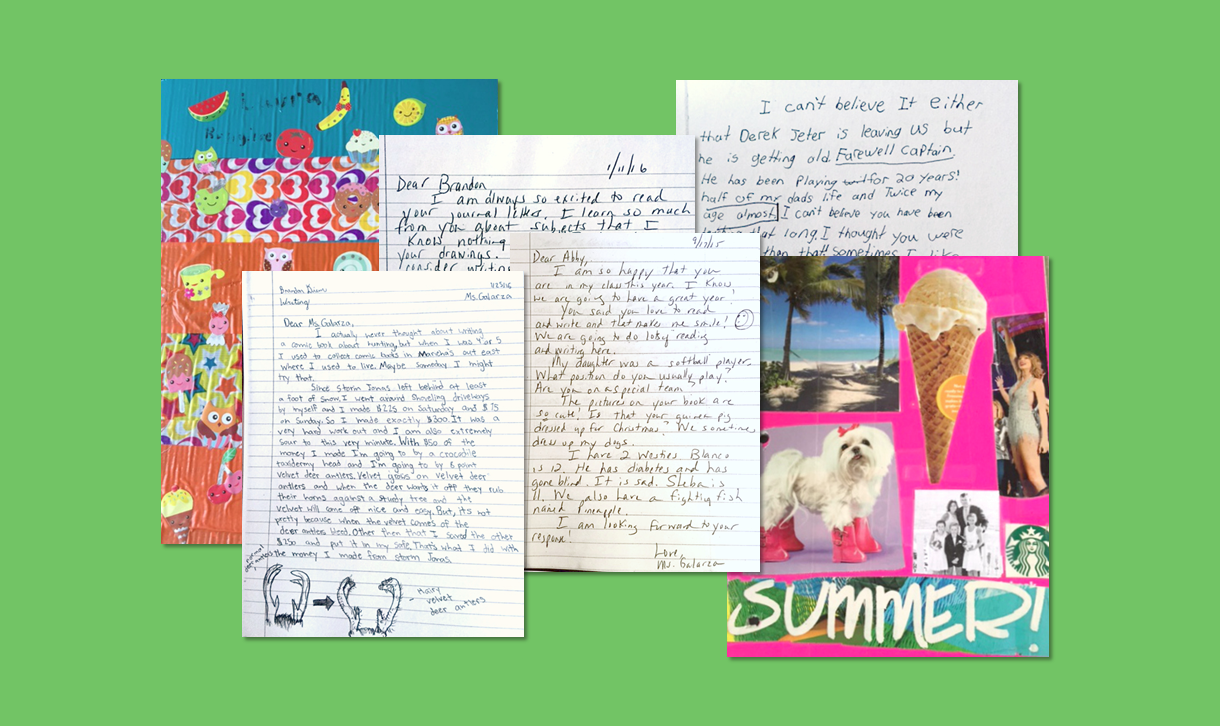 Laura
I can't believe It either
that Derek Jeter is leaving us but
he is getting old. Farewell Captain.
He has been Playing for 20 years!
half of my dads life and Twice my
age almost I can't believe you have been
that long. I thought you were
then that sometimes I like
1/11/16
Dear Brandon,
I am always so excited to read
your journal letter. I learn so much
from you about subjects that I
know nothing
your drawings.
consider writing
9/7/15
Dear Abby,
I am so happy that you
are in my class this year. I know,
we are going to have a great year.
You said you love to read
and write and that makes me smile!
We are going to do lots of reading
and writing here.
My daughter was a softball player.
What position do you usually play?
Are you on a special team?
The pictures on your book are
so cute! Is that your guinea pig
dressed up for Christmas? We sometimes
dress up my dogs.
I have 2 Westies. Blanco
is 12. He has diabetes and has
gone blind. It is sad. Sheba is
11. We also have a fighting fish
named Pineapple.
I am looking forward to your
response!
Love,
Ms. Galarza
Brandon
Writing
Ms. Galarza
Dear Ms. Galarza,
I actually never thought about writing
a comic book about hunting, but when I was 4 or 5
I used to collect comic books in Marcha's out east
where I used to live. Maybe someday I might
try that.
Since Storm Jonas left behind at least
a foot of snow. I went around shoveling driveways
by myself and I made $225 on Saturday and $75
on Sunday. So I made exactly $300. It was a
very hard work out and I am also extremely
sour to this very minute. With $50 of the
money I made I'm going to by a crocodile
taxidermy head and I'm going to by 8 point
velvet deer antlers. Velvet grows on velvet deer
antlers and when the deer wants it off they rub
their horns against a sturdy tree and the
velvet will come off nice and easy. But, its not
pretty because when the velvet comes of the
deer antlers bleed. Other then that I saved the other
$250 and put it in my safe. That's what I did with
the money I made from storm Jonas.
Hairy
velvet
deer antlers
SUMMER!